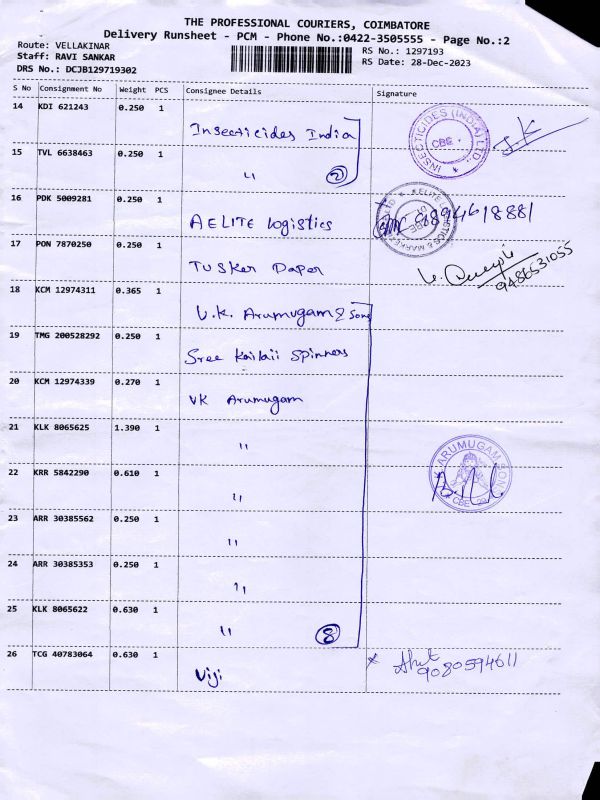 THE PROFESSIONAL COURIERS, COIMBATORE
Delivery Runsheet - PCM - Phone No.:0422-3505555 - Page No.:2
Route: VELLAKINAR
Staff: RAVI SANKAR
DRS No.: DCJB129719302
RS No.: 1297193
RS Date: 28-Dec-2023
S No Consignment No Weight PCS Consignee Details Signature
14 KDI 621243 0.250 1 Insecticides India
INSECTICIDES (INDIA) LTD.
CBE
J.K
15 TVL 6638463 0.250 1 〃 2
16 PDK 5009281 0.250 1 AELITE Logistics 8894618881
17 PON 7870250 0.250 1 Tusker Paper
9486531055
18 KCM 12974311 0.365 1 V.K. Arumugam & Sons
19 TMG 200528292 0.250 1 Sree Kailaii Spinners
20 KCM 12974339 0.270 1 VK Arumugam
21 KLK 8065625 1.390 1 〃
ARUMUGAM
CBE
22 KRR 5842290 0.610 1 〃
23 ARR 30385562 0.250 1 〃
24 ARR 30385353 0.250 1 〃
25 KLK 8065622 0.630 1 〃 8
26 TCG 40783064 0.630 1 Viji 9080594611